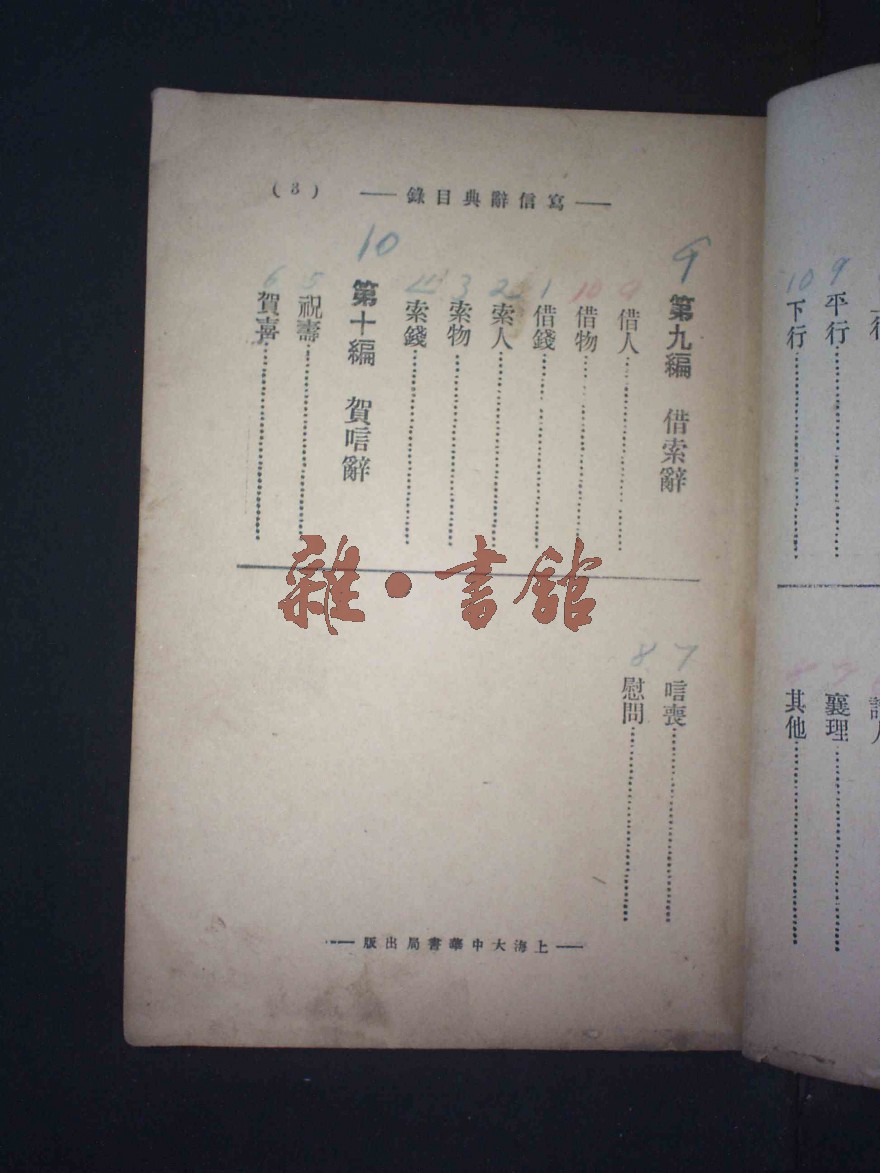 9 平行
10 下行
7 襄理
8 其他
寫信辭典目錄 (3)
9 第九編 借索辭
9 借人
10 借物
1 借錢
2 索人
3 索物
4 索錢
10 第十編 賀唁辭
5 祝壽
6 賀喜
7 唁喪
8 慰問
上海大中華書局出版
雜·書館